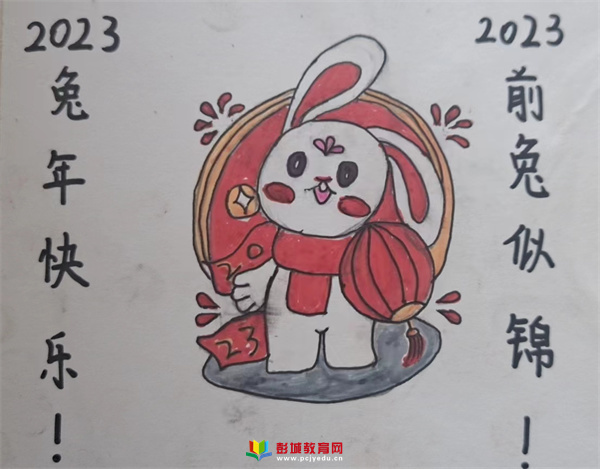 2023
兔年快乐！
2023
前兔似锦！
2023
彭城教育网
www.pcjyedu.cn